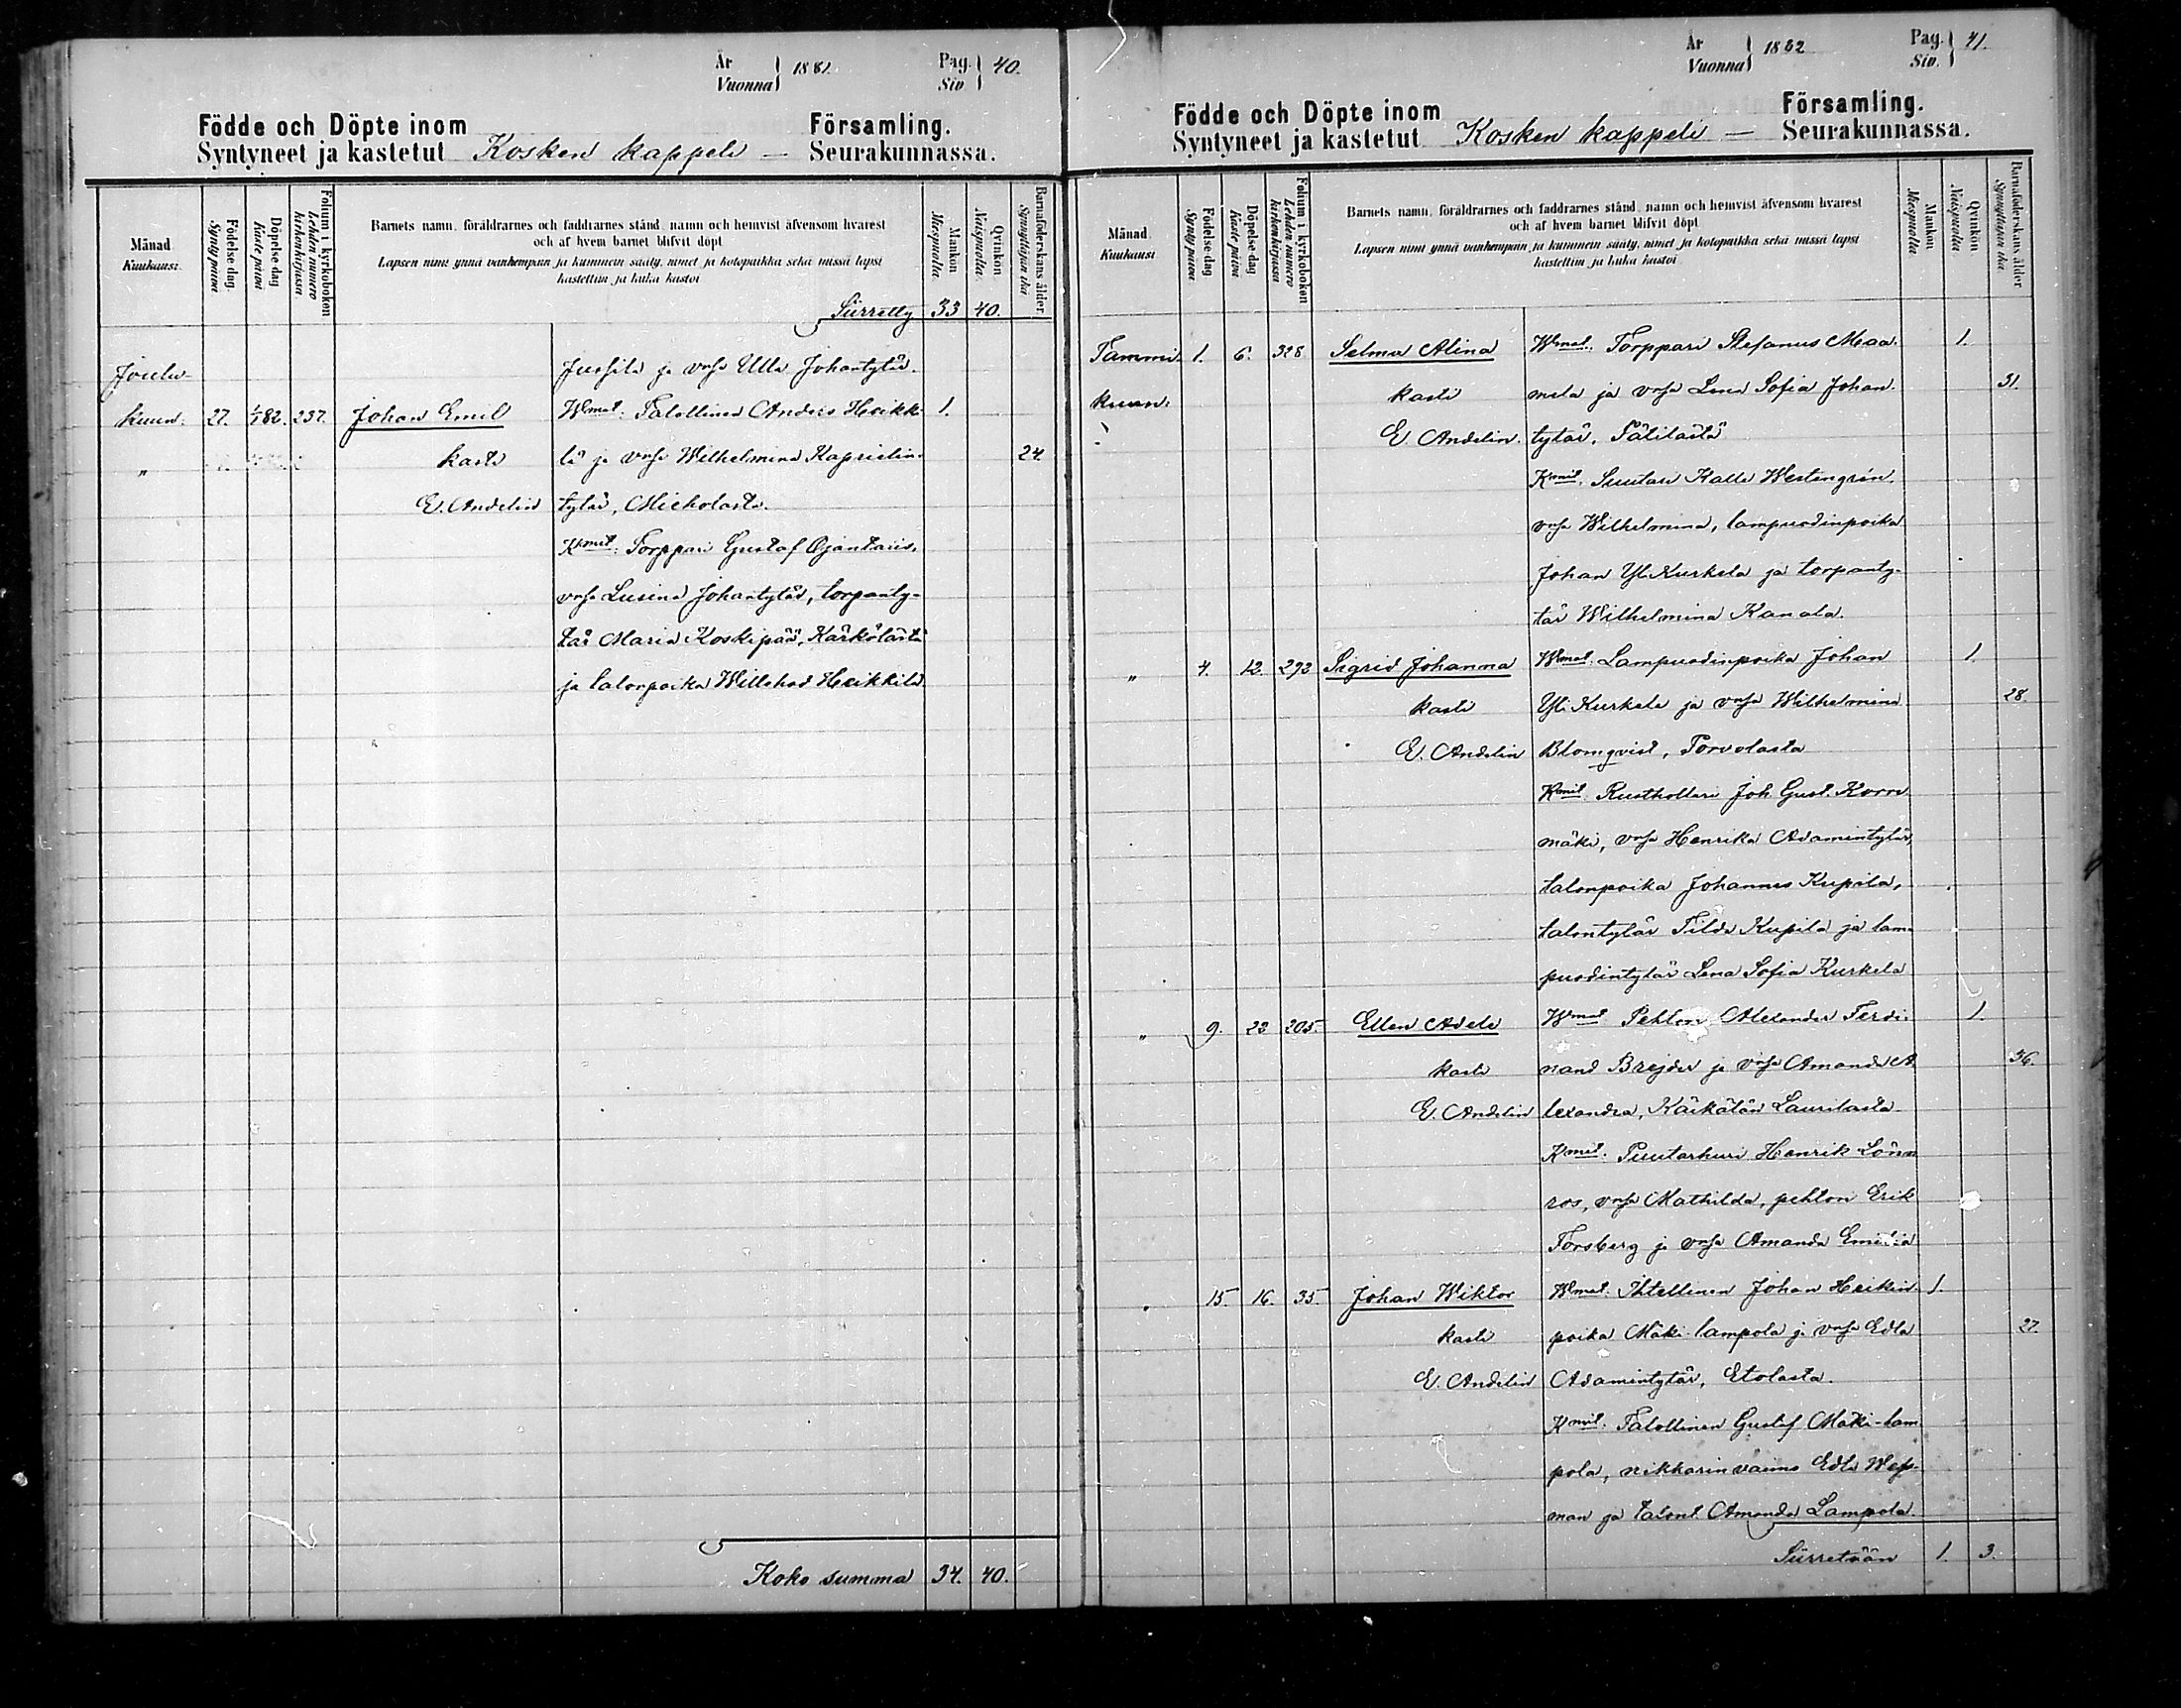 År Vuonna 1881. Pag. Siv 40.
Födde och Döpte inom Församling.
Syntyneet ja kastetut Kosken kappeli — Seurakunnassa.
Månad Kuukausi
Födelse dag. Synty päivä
Döpelse dag Kaste päivä
Folium i kyrkoboken Lehden numero kirkonkirjassa
Barnets namn, föräldrarnes och faddrarnes stånd, namn och hemvist äfvensom hvarest
och af hvem barnet blifvit döpt
Lapsen nimi ynnä vanhempain ja kummein sääty, nimet ja kotopaikka sekä missä lapsi
kastettiin ja kuka kastoi
Mankön Miespuolta.
Qvinkön Naispuolta.
Barnaföderskans ålder Synnyttäjän ikä
Siirretty 33 40.
Joulu- Jussila ja vmsa Ulla Johantytär.
kuun. 27. 1/1 82. 237. Johan Emil Wmat: Talollinen Anders Heikki- 1.
„ kasti lä ja vmsa Wilhelmina Kaprielin- 24.
E. Andelin tytär, Micholasta.
Kmit: Torppari Gustaf Ojantaus,
vmsa Lusina Johantytär, torpanty-
tär Maria Koskipää, Kärkölästä
ja talonpoika Willehad Heikkilä.
Koko summa 34. 40.
År Vuonna 1882 Pag. Siv. 41.
Födde och Döpte inom Församling.
Syntyneet ja kastetut Kosken kappeli — Seurakunnassa.
Månad Kuukausi
Födelse-dag Synty päivä
Döpelse-dag Kaste päivä
Folium i kyrkoboken Lehden numero kirkonkirjassa
Barnets namn, föräldrarnes och faddrarnes stånd, namn och hemvist äfvensom hvarest
och af hvem barnet blifvit döpt
Lapsen nimi ynnä vanhempain ja kummein sääty, nimet ja kotopaikka sekä missä lapsi
kastettiin ja kuka kastoi
Mankön Miespuolta
Qvinkön Naispuolta
Barnaföderskans ålder Synnyttäjän ikä
Tammi- 1. 6. 328 Selma Alina Wmat. Torppari Stefanus Maa- 1.
kuun. kasti mela ja vmsa Lena Sofia Johan- 31.
E Andelin. tytär, Tätilästä
Kmit. Suutari Kalle Westengrén,
vmsa Wilhelmina, lampuodinpoika
Johan Yli Kurkela ja torpanty-
tär Wilhelmina Kanala.
„ 4. 12. 292 Sigrid Johanna Wmat. Lampuodinpoika Johan 1.
kasti Yli Kurkela ja vmsa Wilhelmina 28.
E. Andelin Blomqvist, Porvolasta
Kmit. Rusthollari Joh Gust. Korri-
mäki, vmsa Henrika Adamintytär,
talonpoika Johannes Kupila,
talontytär Tilda Kupila ja lam-
puodintytär Lena Sofia Kurkela
„ 9. 22 205. Ellen Adele Wmat. Pehtori Alexander Ferdi- 1.
kasti nand Brejder ja vmsa Amanda A- 36.
E. Andelin lexandra, Kärkölän Laurilasta.
Kmit. Puutarhuri Henrik Lönn-
ros, vmsa Mathilda, pehtori Erik
Forsberg ja vmsa Amanda Emilia
„ 15. 16. 35. Johan Wiktor Wmat. Ihtellinen Johan Heikin- 1.
kasti poika Mäki-lampola ja vmsa Edla 27.
E. Andelin Adamintytär, Etolasta.
Kmit. Talollinen Gustaf Mäki-lam-
pola, nikkarinvaimo Edla Wess-
man ja talont. Amanda Lampola.
Siirretään 1. 3.